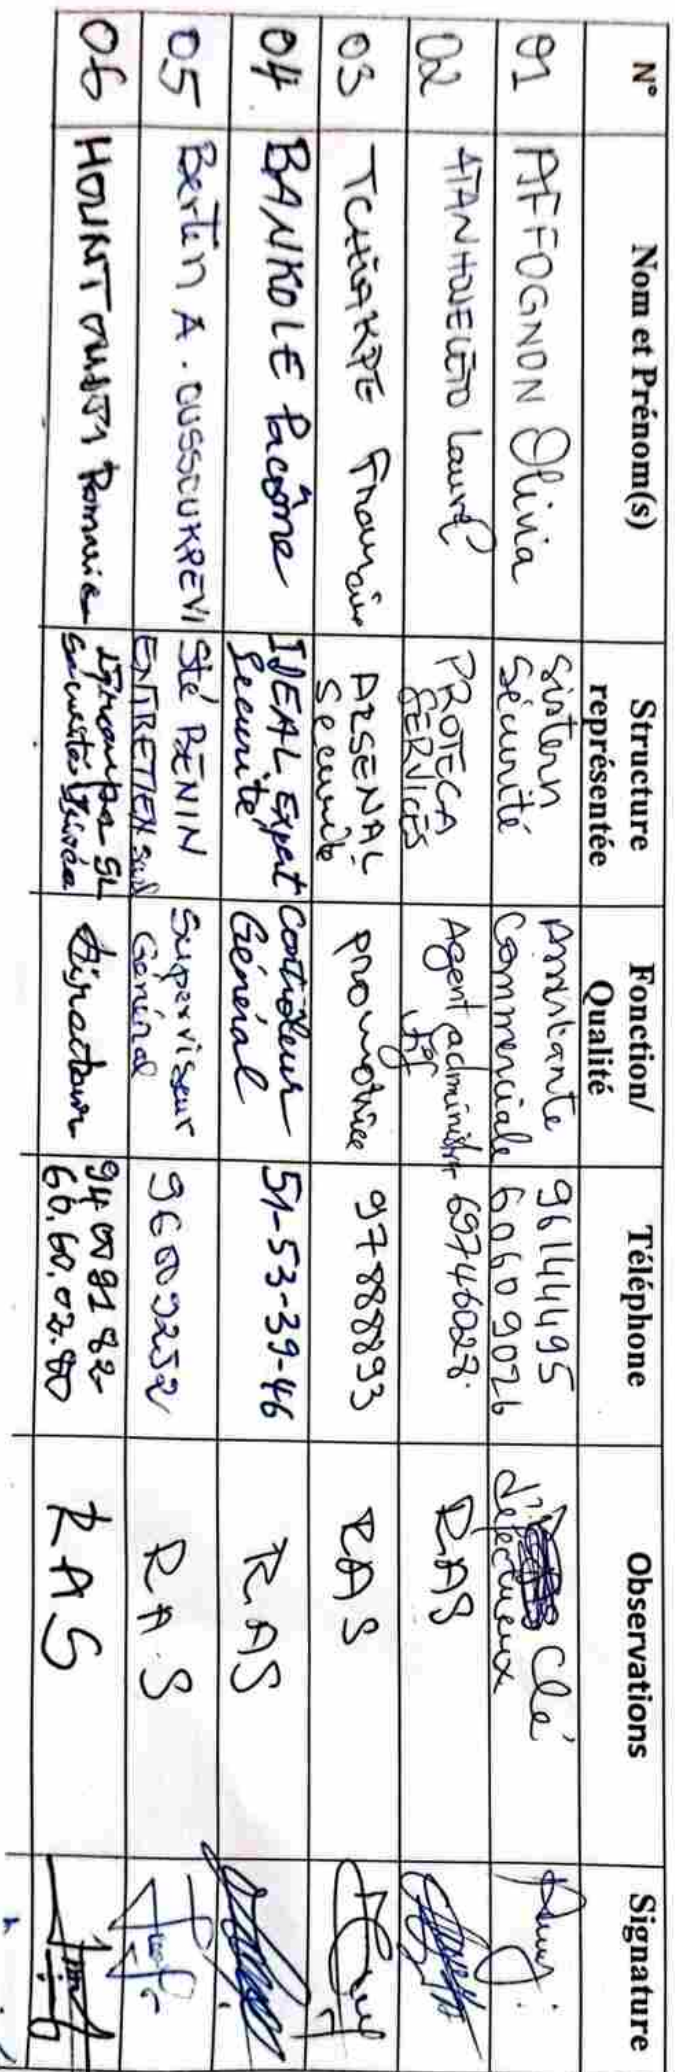 N° Nom et Prénom(s) Structure représentée Fonction/ Qualité Téléphone Observations Signature
01 AFFOGNON Olivia Sistern Sécurité Assistante Commerciale 96144495 60609026 Clé défectueux
02 Laure PROTECA SERVICES Agent administratif 69746028 RAS
03 TCHIAKPE ARSENAL Securité promotrice 97888893 RAS
04 BANKOLE Pacôme IDEAL Expert Securité Controleur Général 51-53-39-46 RAS
05 Bertin A. OUSSOUKPEVI Sté BENIN ENTRETIEN Superviseur Général 96009252 R A.S
06 Romaric Sécurité Privée Directeur 94009182 60.60.02.80 RAS